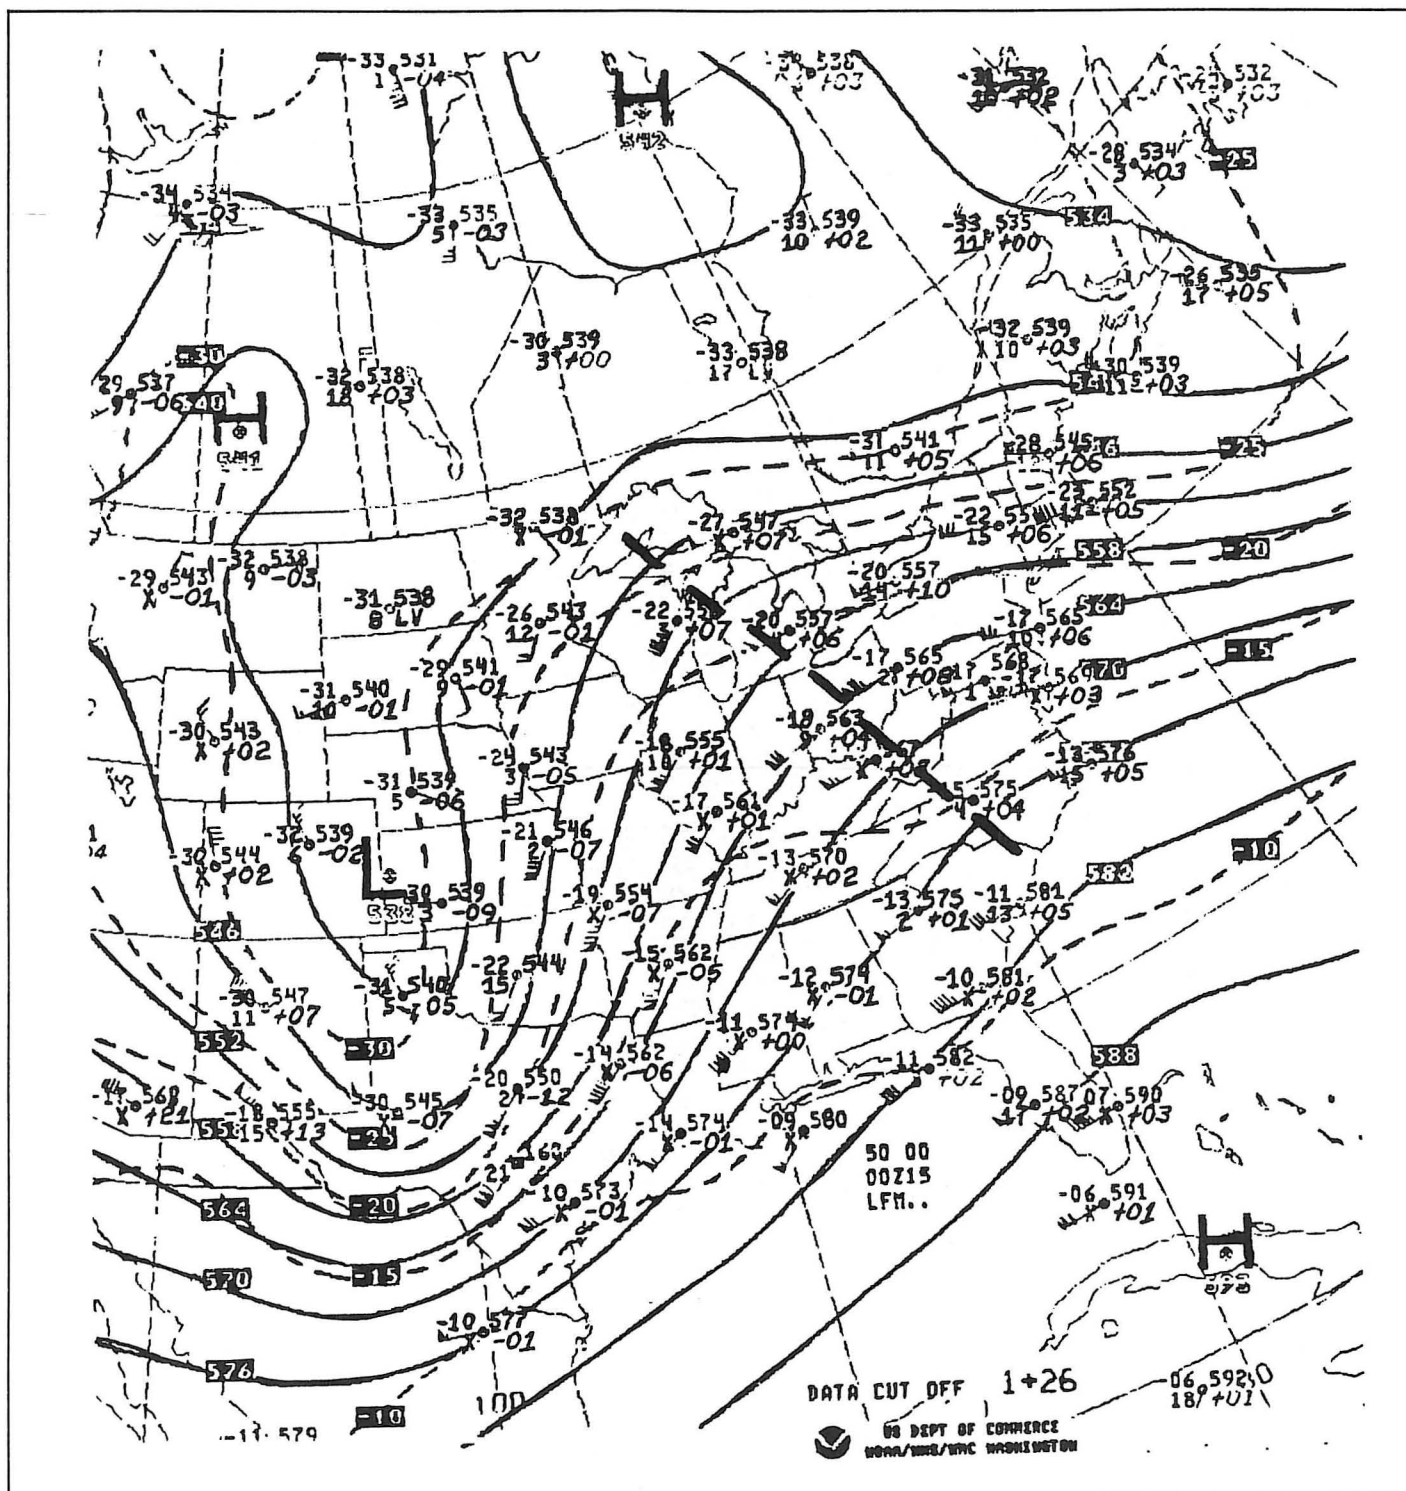 -33 531
1 -04
H
542
538
+03
-31 532
+02
532
+03
-28 534
3 +03
-25
-34 534
-03
-33 535
5 -03
-33 539
10 +02
-33 535
11 +00
534
-26 535
17 +05
-30
-30 539
3 +00
-33 538
17
-32 539
10 +03
-30 539
11 +03
29 537
9 -06
540
H
-32 538
18 +03
-31 541
11 +05
-28 545
+06
-25
-23 552
11 +05
-32 538
X -01
-27 547
X +07
-22 55
15 +06
558
-20
-29 543
X -01
-32 538
9 -03
-31 538
8 LV
-26 543
12 -01
-22 55
+07
-20 557
+06
-20 557
14 +10
564
-17 565
10 +06
-15
-29 541
9 -01
-31 540
10 -01
-17 565
2 +08
-17 568
1
-17 569
+03
-30 543
X +02
-24 543
3 -05
-18 555
10 +01
-18 563
9 +04
-13 576
15 +05
-31 539
5 -06
-17 561
X +01
575
4 +04
-30 544
X +02
-32 539
6 -02
-21 546
2 -07
-13 570
X +02
-10
582
L
-30 539
3 -09
-19 554
X -07
-13 575
2 +01
-11 581
13 +05
546
-15 562
X -05
-22 544
15
-31 540
5 -05
-30 547
11 +07
-12 574
X -01
-10 581
X +02
552
-30
-11 574
X +00
588
-14 562
X -06
-11 582
+02
-20 550
21 -12
568
X +21
558
-18 555
15 +13
-30 545
X -07
-25
-14 574
X -01
-09 580
X
-09 587
17 +02
07 590
+03
160
21
50 00
00Z15
LFM..
-20
564
-10 573
X -01
-06 591
X +01
H
-15
570
-10 577
X -01
576
-10
100
-11 579
DATA CUT OFF 1+26
06 592
18 +01
US DEPT OF COMMERCE
NOAA/NWS/NMC WASHINGTON